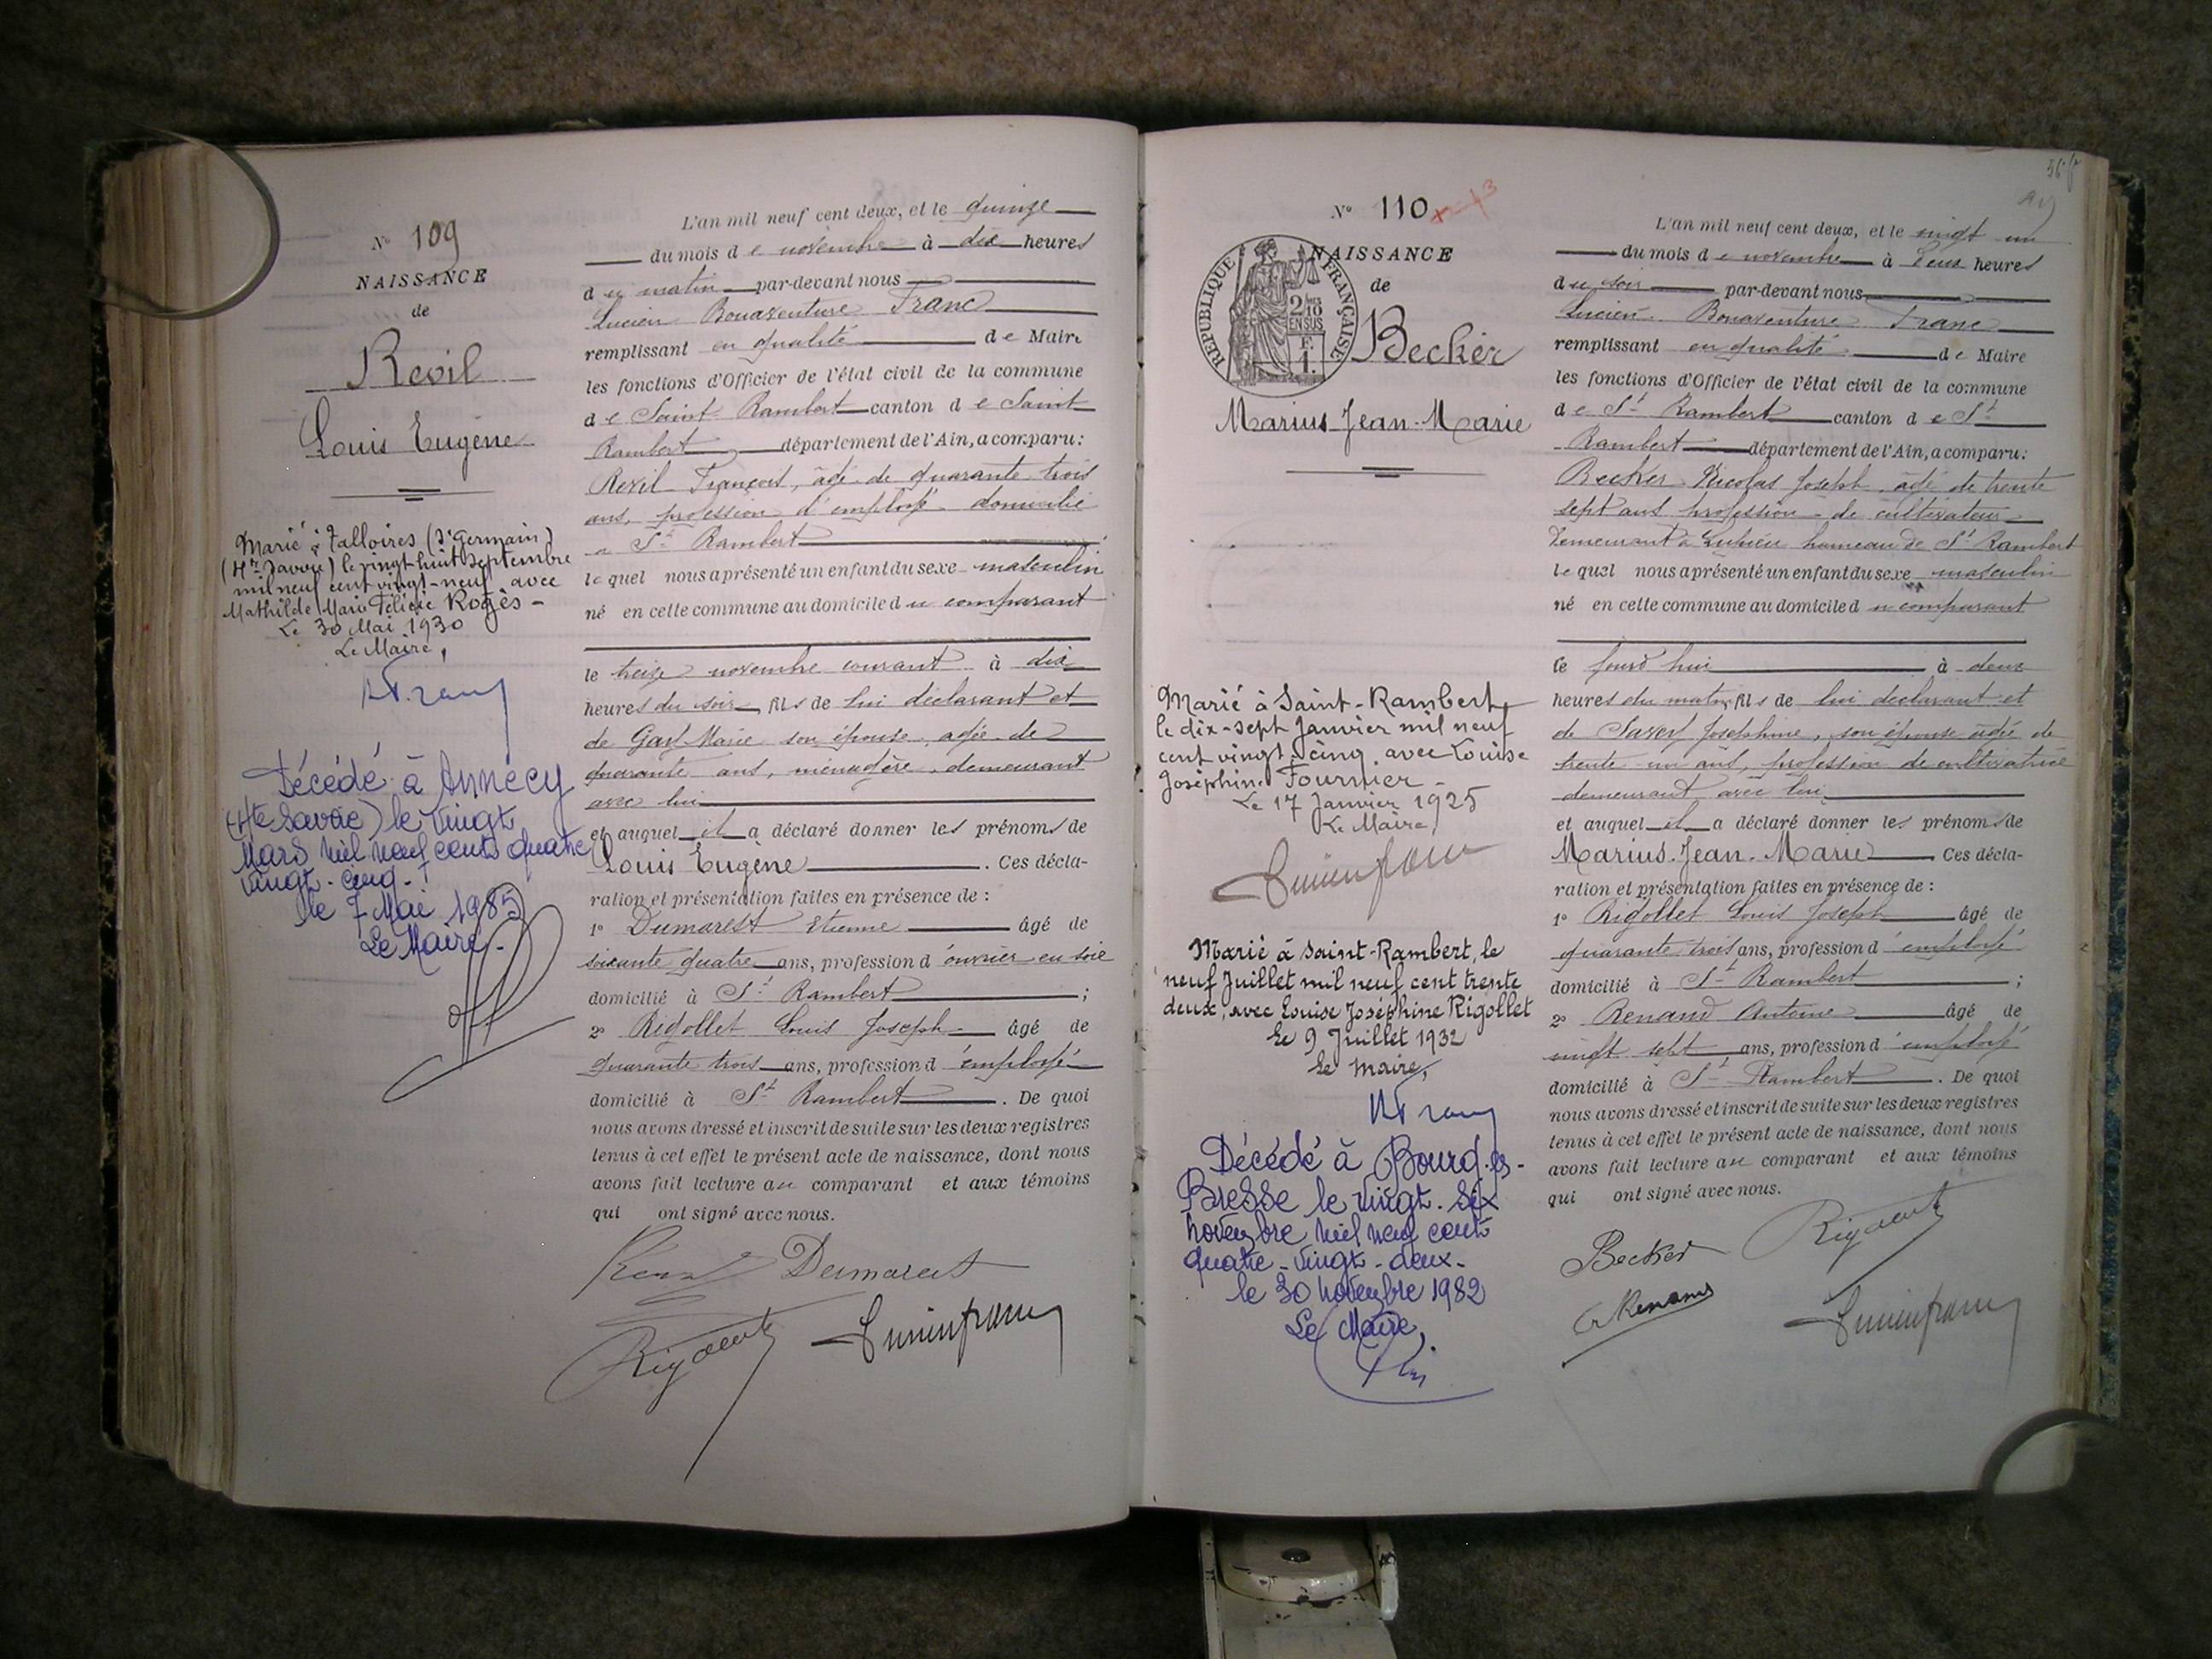 N° 109
NAISSANCE
de
Revil
Louis Eugène
Marié à Talloires (St Germain)
(Hte Savoie) le vingt-huit septembre
mil neuf cent vingt-neuf avec
Mathilde Marie Félicie Rogès -
Le 30 Mai 1930
Le Maire,
Décédé à Annecy
(Hte Savoie) le vingt
Mars mil neuf cent quatre
vingt-cinq.
le 7 Mai 1985
Le Maire.
L'an mil neuf cent deux, et le quinze
du mois de novembre à dix heures
du matin par-devant nous
Lucien Bonaventure Franc
remplissant en qualité de Maire
les fonctions d'Officier de l'état civil de la commune
de Saint Rambert canton de Saint
Rambert département de l'Ain, a comparu:
Revil François, âgé de quarante trois
ans, profession d'employé domicilié
à St Rambert
lequel nous a présenté un enfant du sexe masculin
né en cette commune au domicile du comparant
le treize novembre courant à dix
heures du soir, fils de lui déclarant et
de Marie son épouse, agée de
quarante ans, ménagère, demeurant
avec lui
et auquel il a déclaré donner les prénoms de
Louis Eugène. Ces décla-
ration et présentation faites en présence de :
1° Dumarest Etienne âgé de
soixante quatre ans, profession d'ouvrier en soie
domicilié à St Rambert ;
2° Rigollet Louis Joseph âgé de
quarante trois ans, profession d'employé
domicilié à St Rambert. De quoi
nous avons dressé et inscrit de suite sur les deux registres
tenus à cet effet le présent acte de naissance, dont nous
avons fait lecture au comparant et aux témoins
qui ont signé avec nous.
Dumarest
Rigollet
Lucien franc
N° 110
NAISSANCE
de
REPUBLIQUE FRANÇAISE
2/10 EN SUS
F. 1.
Becker
Marius Jean-Marie
Marié à Saint-Rambert
le dix-sept Janvier mil neuf
cent vingt cinq avec Louise
Joséphine Fournier -
Le 17 Janvier 1925
Le Maire,
Lucien franc
Marié à Saint-Rambert, le
neuf Juillet mil neuf cent trente
deux, avec Louise Joséphine Rigollet
Le 9 Juillet 1932
Le Maire,
Décédé à Bourg-es-
Bresse le vingt-six
novembre mil neuf cent
quatre-vingt-deux-
le 30 Novembre 1982
Le Maire,
L'an mil neuf cent deux, et le vingt un
du mois de novembre à deux heures
du soir par-devant nous
Lucien Bonaventure Franc
remplissant en qualité de Maire
les fonctions d'Officier de l'état civil de la commune
de St Rambert canton de St
Rambert département de l'Ain, a comparu:
Becker Nicolas Joseph, âgé de trente
sept ans profession de cultivateur
demeurant à hameau de St Rambert
lequel nous a présenté un enfant du sexe masculin
né en cette commune au domicile du comparant
le jourd'hui à deux
heures du matin, fils de lui déclarant et
de Joséphine, son épouse âgée de
trente un ans, profession de cultivatrice
demeurant avec lui
et auquel il a déclaré donner les prénoms de
Marius Jean-Marie. Ces décla-
ration et présentation faites en présence de :
1° Rigollet Louis Joseph âgé de
quarante trois ans, profession d'employé
domicilié à St Rambert ;
2° Renand Antoine âgé de
vingt sept ans, profession d'employé
domicilié à St Rambert. De quoi
nous avons dressé et inscrit de suite sur les deux registres
tenus à cet effet le présent acte de naissance, dont nous
avons fait lecture au comparant et aux témoins
qui ont signé avec nous.
Becker
Rigollet
Renand
Lucien franc